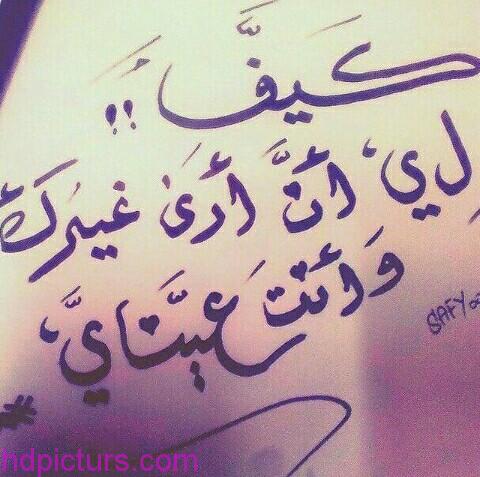 كَيفَّ !!
لِي، أنَّ أرىَ غيرك
وَأنت عيَّنايَّ،
SAFY
hdpicturs.com